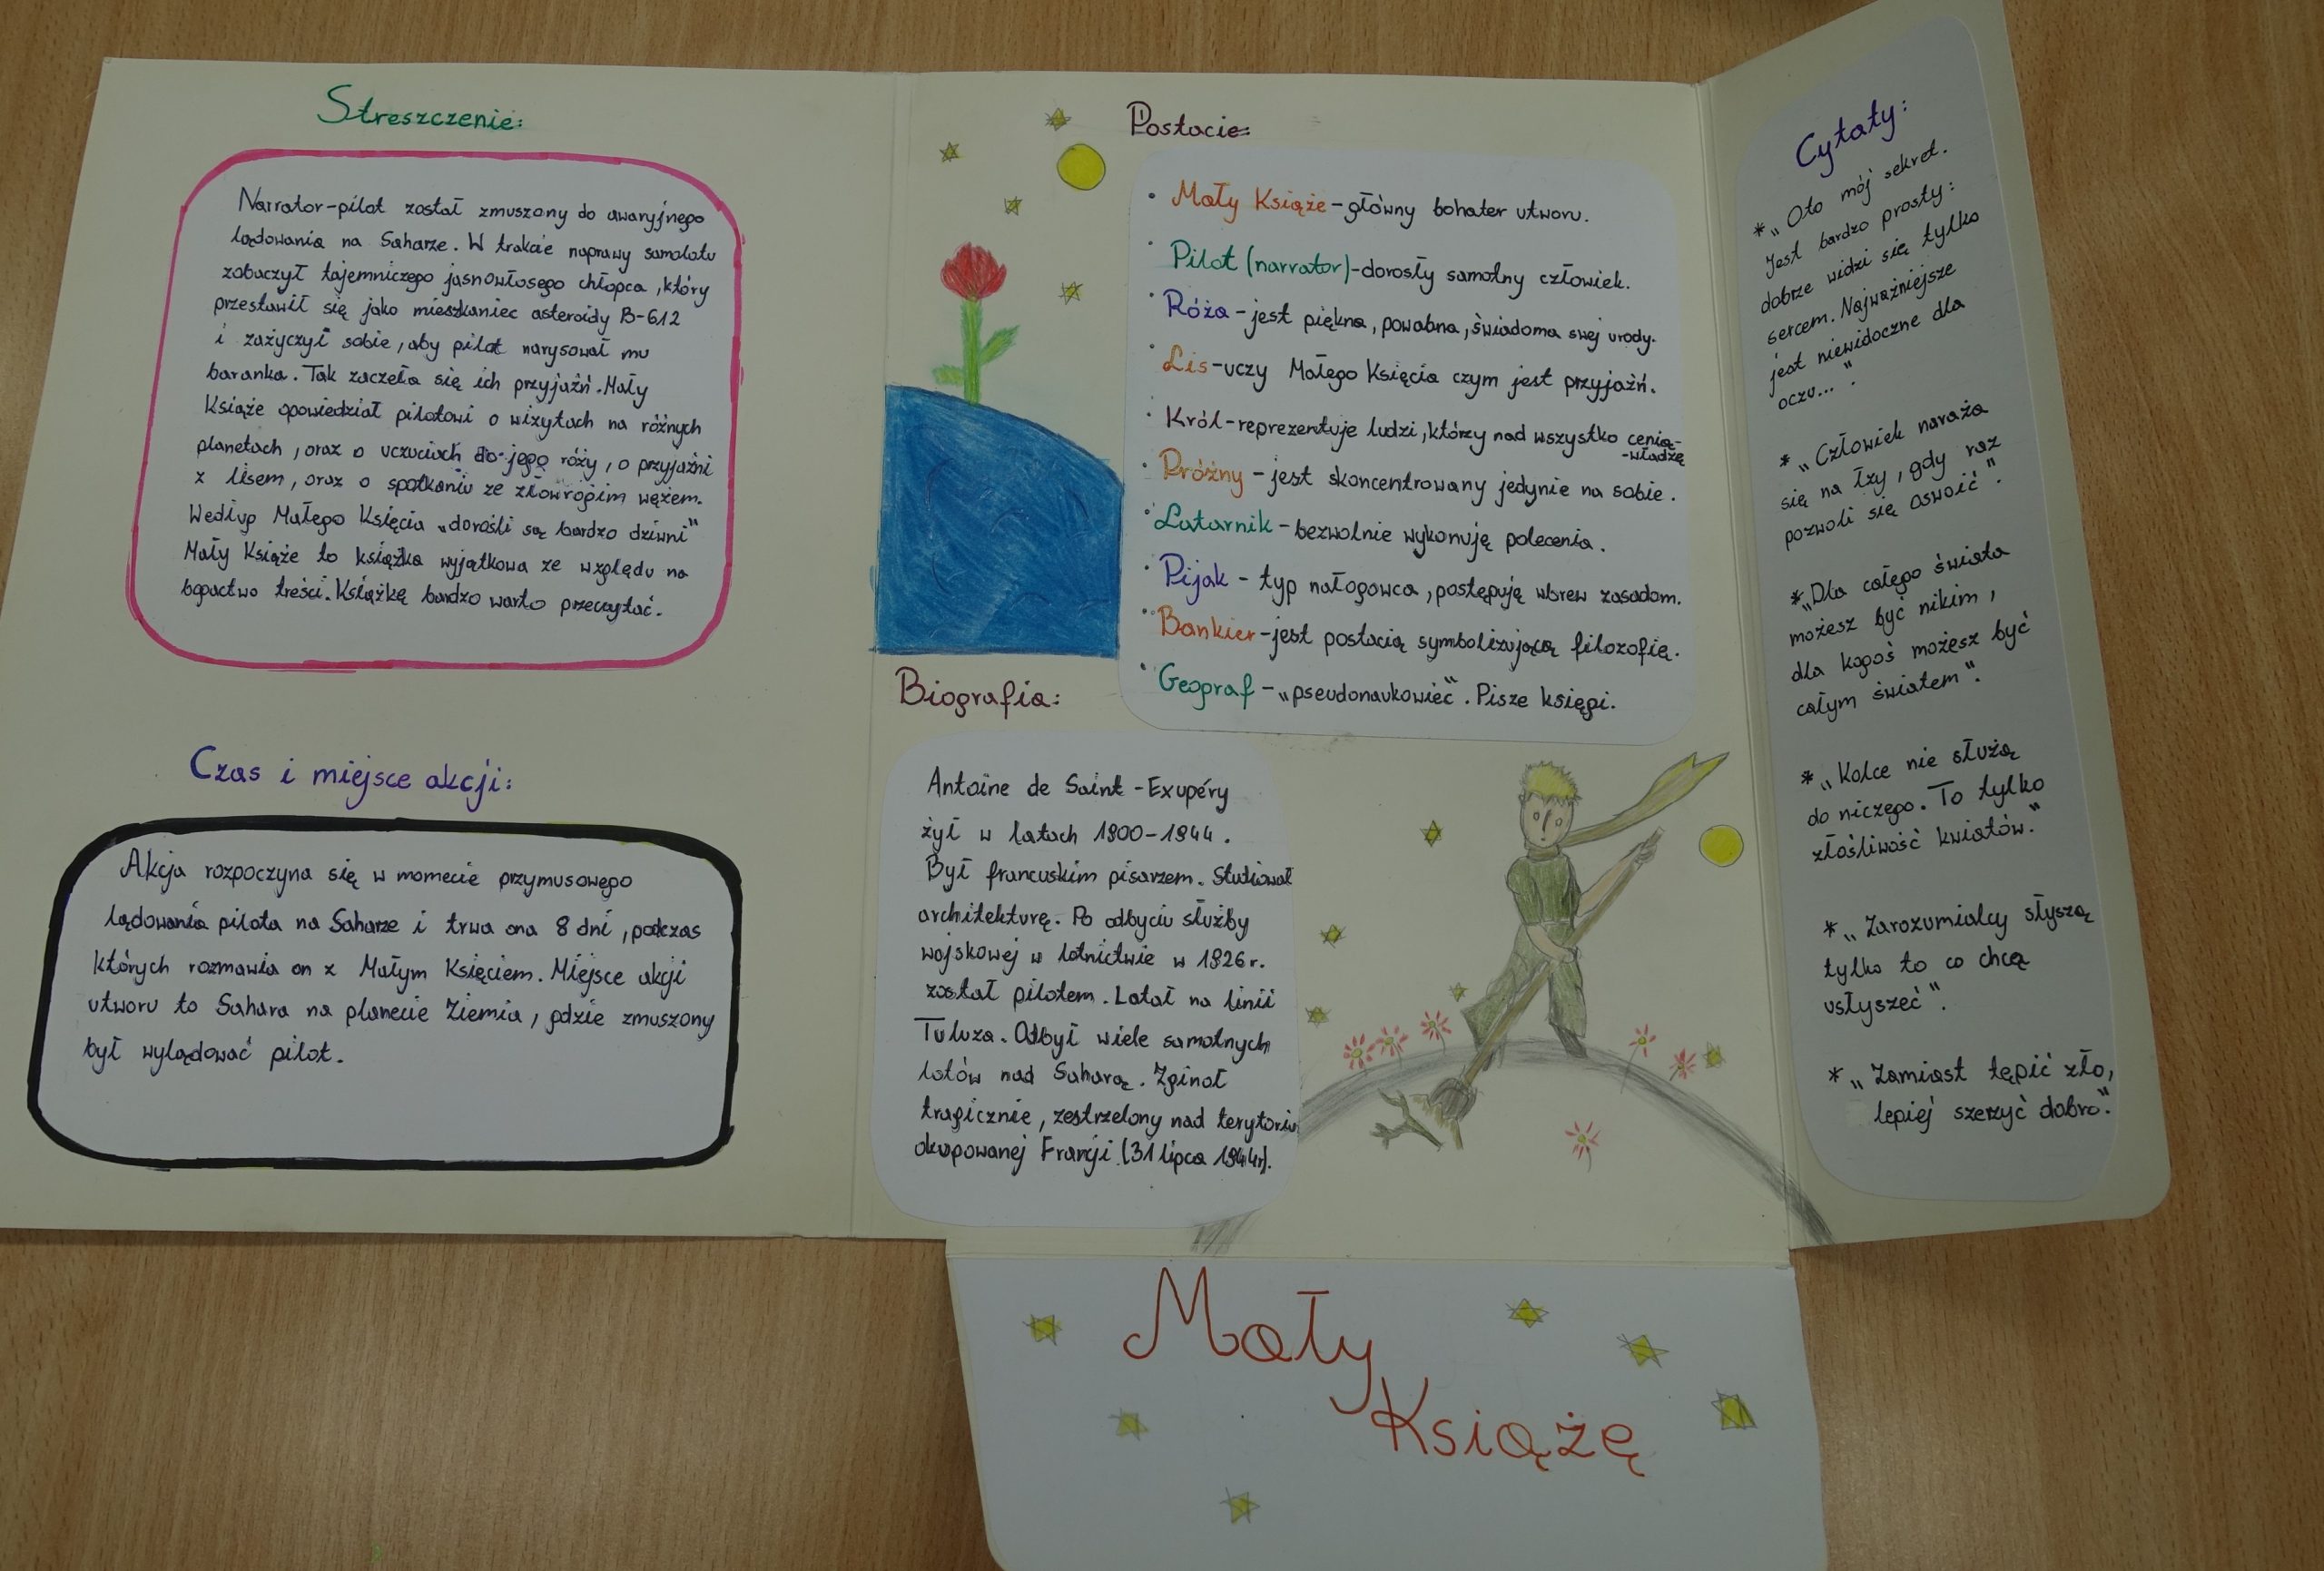 Streszczenie:
Narrator-pilot został zmuszony do awaryjnego
lądowania na Saharze. W trakcie naprawy samolotu
zobaczył tajemniczego jasnowłosego chłopca, który
przestawił się jako mieszkaniec asteroidy B-612
i zażyczył sobie, aby pilot narysował mu
baranka. Tak zaczęła się ich przyjaźń. Mały
Książe opowiedział pilotowi o wizytach na różnych
planetach, oraz o uczuciach do jego róży, o przyjaźni
z lisem, oraz o spotkaniu ze złowrogim wężem.
Według Małego Księcia „dorośli są bardzo dziwni"
Mały Książe to książka wyjątkowa ze względu na
bogactwo treści. Książkę bardzo warto przeczytać.
Czas i miejsce akcji:
Akcja rozpoczyna się w momecie przymusowego
lądowania pilota na Saharze i trwa ona 8 dni, podczas
których rozmawia on z Małym Księciem. Miejsce akcji
utworu to Sahara na planecie Ziemia, gdzie zmuszony
był wylądować pilot.
Postacie:
• Mały Książe - główny bohater utworu.
• Pilot (narrator) - dorosły samotny człowiek.
• Róża - jest piękna, powabna, świadoma swej urody.
• Lis - uczy Małego Księcia czym jest przyjaźń.
• Król - reprezentuje ludzi, którzy nad wszystko cenią-
-władzę
• Próżny - jest skoncentrowany jedynie na sobie.
• Latarnik - bezwolnie wykonuję polecenia.
• Pijak - typ nałogowca, postępuję wbrew zasadom.
• Bankier - jest postacią symbolizującą filozofię.
• Geograf - „pseudonaukowieć". Pisze księgi.
Biografia:
Antoine de Saint-Exupéry
żył w latach 1900-1944.
Był francuskim pisarzem. Studiował
architekturę. Po odbyciu służby
wojskowej w lotnictwie w 1926r.
został pilotem. Latał na linii
Tuluza. Odbył wiele samotnych
lotów nad Saharą. Zginoł
tragicznie, zestrzelony nad terytorium
okupowanej Francji (31 lipca 1944r).
Cytaty:
* „Oto mój sekret.
Jest bardzo prosty:
dobrze widzi się tylko
sercem. Najważniejsze
jest niewidoczne dla
oczu...".
* „Człowiek naraża
się na łzy, gdy raz
pozwoli się oswoić".
* „Dla całego świata
możesz być nikim,
dla kogoś możesz być
całym światem".
* „Kolce nie służą
do niczego. To tylko
złośliwość kwiatów."
* „Zarozumialcy słyszą
tylko to co chcą
usłyszeć".
* „Zamiast tępić zło,
lepiej szerzyć dobro".
Mały
Książę